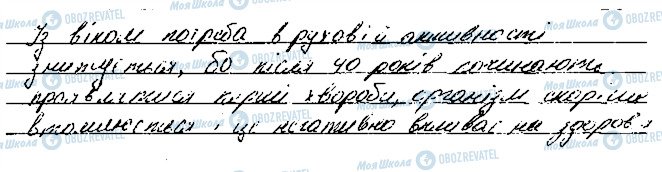 Із віком потреба в руховій активності
знижується, бо після 40 років починають
проявлятися хвороби, організм скоріше
втомлюється і це негативно впливає на здоров'я